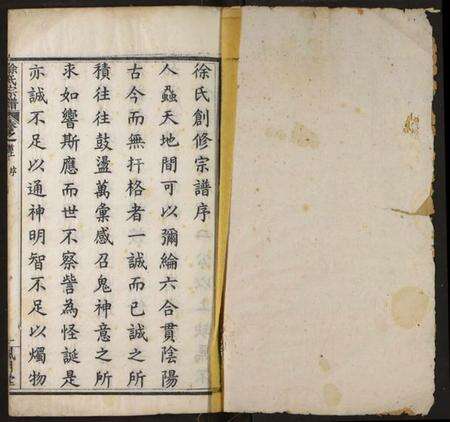 徐氏創修宗譜序
人蝨天地間可以彌綸六合貫陰陽
古今而無扞格者一誠而已誠之所
積往往鼓盪萬彙感召鬼神意之所
求如響斯應而世不察訾為怪誕是
亦誠不足以通神明智不足以燭物
徐氏宗譜